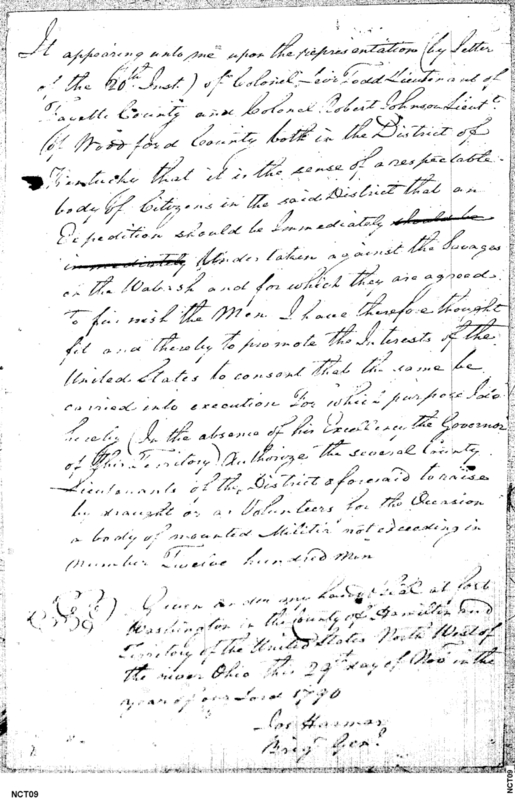 It appearing unto me upon the representation (by letter
of the 20th Inst.) of Colonel Levi Todd Lieutenant of
Fayette County and Colonel Robert Johnson Lieut.
of Woodford County both in the District of
Kentucky that it is the sense of a respectable
body of Citizens in the said District that an
Expedition should be Immediately should be
immediately Undertaken against the Savages
on the Wabash and for which they are agreed
to furnish the Men I have therefore thought
fit and thereby to promote the Interests of the
United States to consent that the same be
carried into execution For which purpose I do
hereby (In the absence of his Excellency the Governor
of this Territory) Authorize the several County
Lieutenants of the District aforesaid to raise
by draught or as Volunteers for the Occasion
a body of mounted Militia not exceeding in
number Twelve hundred Men
Given under my hand & Seal at Fort
Washington in the County of Hamilton and
Territory of the United States North West of
the river Ohio this day of Nov. in the
year of our Lord 1790
Jos Harmar
Brig Genl.
NCT09
NCT09